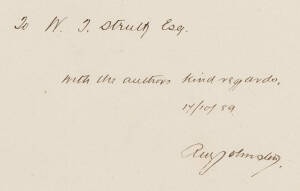 To W. T. Strutt Esq.
with the authors kind regards.
14/10/89
R. M. Johnston.